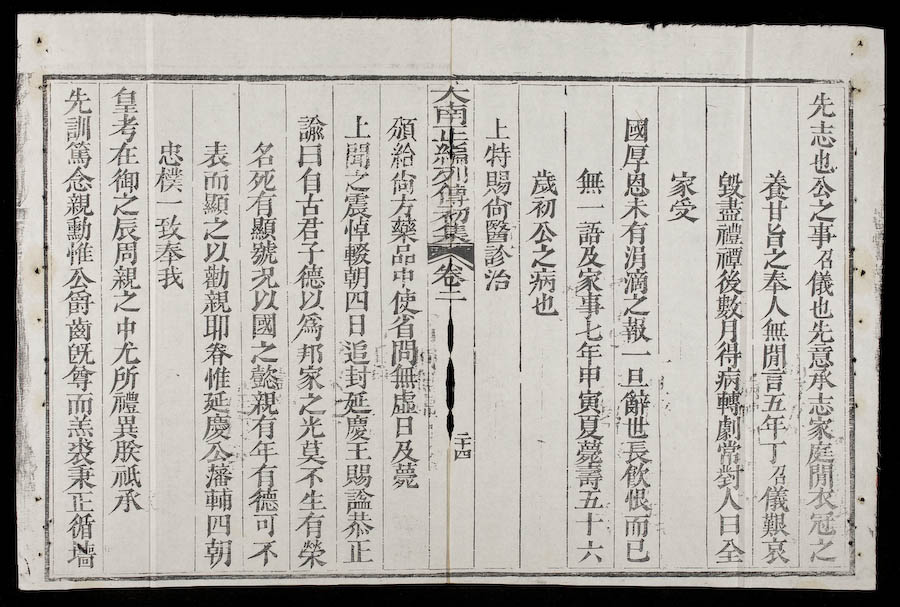 先志也公之事召儀也先意承志家庭閒衣冠之
養甘旨之奉人無閒言五年丁召儀艱哀
毀盡禮禫後數月得病轉劇常對人曰全
家受
國厚恩未有涓滴之報一旦辭世長飲恨而已
無一語及家事七年申寅夏薨壽五十六
歲初公之病也
上特賜尙醫診治
大南正編列傳初集 卷二 二十四
頒給尙方藥品中使省問無虛日及薨
上聞之震悼輟朝四日追封延慶王賜謚恭正
諭曰自古君子德以爲邦家之光莫不生有榮
名死有顯號况以國之懿親有年有德可不
表而顯之以勸親耶眷惟延慶公藩輔四朝
忠樸一致奉我
皇考在御之辰周親之中尤所禮異朕祇承
先訓篤念親勳惟公爵齒旣尊而羔裘秉正循墻